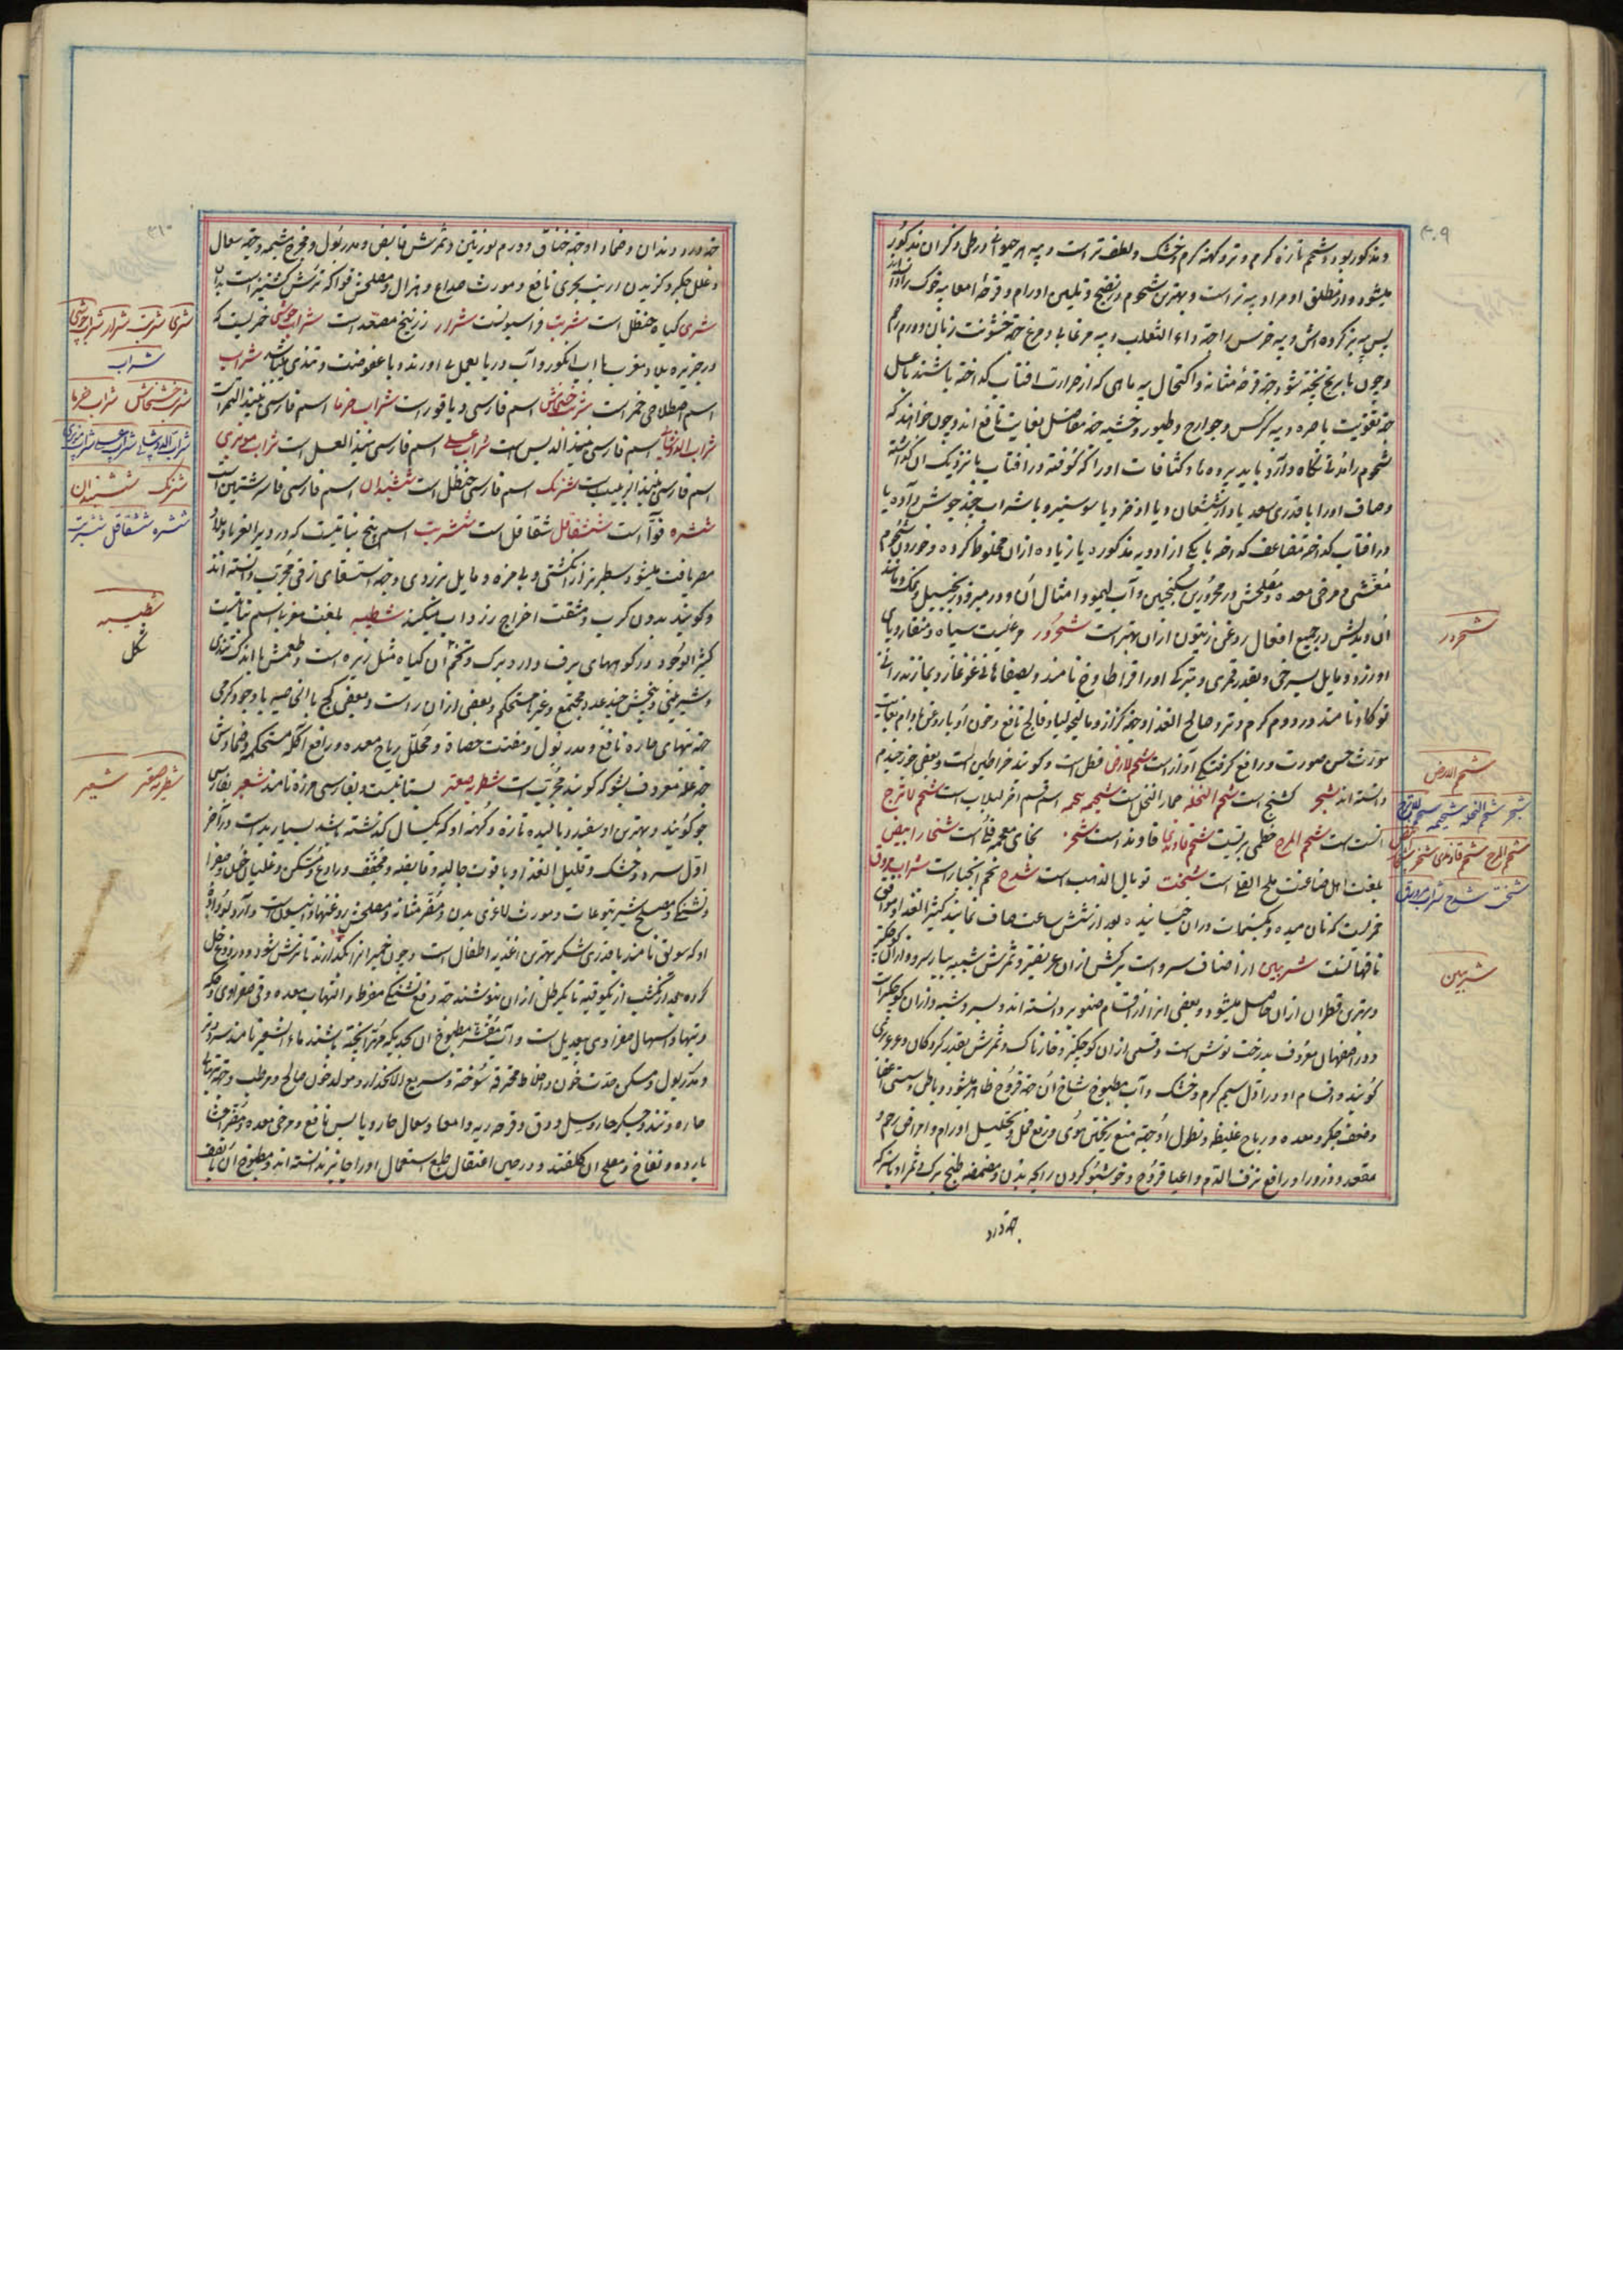 ۳۰۹
و مذکور بود و شحم تازه گرم و تر و کهنه گرم و خشک و لطیف‌تر است و پیه هر حیوانی در طی ذکر آن مذکور
میشود و از مطلق او مراد پیه بز است و بهترین شحوم در نضج و تلیین اورام و قرحه امعا پیه خوک
پس پیه بز کرده‌اش و پیه خرس را جهة داء الثعلب و پیه مرغابی و مرغ جهة خشونت زبان و ورم رحم
و چون با برنج پخته شود جهة قرحه مثانه و اکتحال پیه ماهی که از حرارت افتاب گداخته باشند با عسل
جهة تقویت باصره و پیه کرکس و جوارح و طیور وحشیه جهة مفاصل بغایت نافع اند و چون خواهند که
شحوم را مدتی نگاه دارند باید پرده‌ها و کثافات او را گرفته در افتاب یا نزدیک آن گذاشته
و صاف او را با قدری سعد یا دارشیشعان و یا اذخر و یا سوسنبر و با شراب چند جوش داده یا
در افتاب گداخته مضاعف گداخته با یکی از ادویه مذکوره یا زیاده از آن مخلوط کرده و خوردن شحوم
مغثی و مرخی معده و مصلحش در محرورین سکنجبین و آب لیمو و امثال آن و در مبرودین زنجبیل و نمک و مانند
آن و بدلش در جمیع افعال روغن زیتون از آن بهتر است شحرور مرغیست سیاه و منقار و پای
او زرد و مایل بسرخی و بقدر قمری و بترکی او را قراطاوخ نامند و بصفاهانی غوغاز و بمازندرانی
توکا و نامند در دوم گرم و تر و صالح الغذا و جهة کزاز و مالیخولیا و فالج نافع و خون او با روغن بادام بغایت
مورث حسن صورت و رافع گرفتگی آواز است شحم الارض فطر است و گویند خراطین است و بعضی خرخیدم
دانسته اند شجر کشنج است شحم النخله جمار النخل است شجیحه سحمه اسم قسم اخر لبلاب است شحم لاترج
است شحم المرج خطمی بریست شحم قاوندی قاوند است شحر بخای معجمه فک است شخار ابیض
بلغت اهل صناعت ملح القلی است شخت توبال الذهب است شدخ تخم انجبار است شراب مروق
خمریست که نان میده و بکسمات در آن خیسانیده بعد از شش ساعت صاف نمایند کثیر الغذا و موافق
ناقهانست شربین از اصناف سرو است برگش از آن عریضتر و ثمرش شبیه ببار سرو و از آن کوچکتر
و بهترین قطران از آن حاصل میشود و بعضی انرا از اقسام صنوبر دانسته اند و بسرو شبیه و از آن کوچکتر است
و در اصفهان معروف بدرخت نوش است و قسمی از آن کوچکتر و خارناک و ثمرش بقدر گردکان و عرعر بری
گویند و اقسام او در اول سیم گرم و خشک و آب مطبوخ شاخ آن جهة قروح ظاهر میشود و باطن و سستی اعضا
و ضعف جگر و معده و ریاح غلیظه و نطول او جهة منع ریختن موی و رفع قمل و تحلیل اورام و امراض رحم و
مقعد و ذرور او رافع نزف الدم و اعیا قروح و خوشبو کردن رایحه بدن و مضمضه طبخ برگ و ثمر او با سرکه
جهة درد
شحرور
شحم الارض
شجر شحم النخله شجیحه سحمه شحم لاترج
شحم المرج شحم قاوندی شحر شخار ابیض
شخت شدخ شراب مروق
شربین
۳۱۰
جهة درد دندان و ضماد او جهة خناق و ورم لوزتین و ثمرش قابض و مدر بول و مخرج مشیمه و جهة سعال
و علل جگر و گزیدن ارنب بحری نافع و مورث صداع و هزال و مصلحش فواکه ترش کشنیز است
شری گیاه حنظل است شربت فراسیونست شرار زرنیخ مصعد است شراب جوشی خمریست که
در جزیره بلاد مغرب با آب انگور و آب دریا بعمل می اورند و با عفوصت و تندی میباشد شراب
اسم اصطلاحی خمر است شراب خشخاش اسم فارسی دیاقورا است شراب خرما اسم فارسی نبیذ التمر است
شراب الدوشاب اسم فارسی نبیذ الدبس است شراب عسلی اسم فارسی نبیذ العسل است شراب مویزی
اسم فارسی نبیذ الزبیب است شرنک اسم فارسی حنظل است ششبندان اسم فارسی فاشرشتین است
ششره فوآ است ششقاقل شقاقل است ششربت اسم بیخ نباتیست که در دیر الغربا و بلاد
مصر یافت میشود بسطبرتر از انگشتی و بی مزه و مایل بزردی و جهة استسقای زقی مجرب دانسته اند
و گویند بدون کرب و مشقت اخراج زرداب میکند شطیبه بلغت مغربا اسم نباتیست
کثیر الوجود در کوههای برف دارد برگ و تخم آن گیاه مثل زیره است و طعمش با اندک تندی
و شیرینی و بیخش چند عدد مجتمع و غیر مستحکم و بعضی از آن راست و بعضی کج بالخاصیه با وجود گرمی
جهة تبهای حاره نافع و مدر بول و مفتت حصاة و محلل ریاح معده و رافع آکله مستحکم و ضمادش
جهة علة معروف بشوکه گویند مجربست شطریه صعتر بستانیست و بفارسی مرزه نامند شعیر بفارسی
جو گویند و بهترین او سفید و بالیده تازه و کهنه او که یکسال گذشته باشد بسیار بد است و در آخر
اول سرد و خشک و قلیل الغذا و با قوت جالیه و قابضه و مجفف و رادع و مسکن و غلیان خون و صفرا
و تشنگی و مصلح شیر یتوعات و مورث لاغری بدن و مضر مثانه و مصلحش روغنها و انیسون است و آرد بوداده
او که سویق نامند با قدری شکر بهترین اغذیه اطفال است و چون خمیر انرا بگذارند تا ترش شود و در دوغ حل
کرده بعد از گذشت از یکوقیه تا یکرطل از آن بنوشند جهة رفع تشنگی مفرط و التهاب معده و قی صفراوی و حکه
و تبها و اسهال صفراوی بیعدیل است و آب مقشر مطبوخ آن بحدیکه مهرا پخته باشند ماء الشعیر نامند سرد و تر
و مدر بول و مسکن حدت خون و اخلاط محترقه سوخته و سریع الانحدار و مولد خون صالح و مرطب و جهة تبهای
حاره و تند و جگر حار و سل و دق و قرحه ریه و امعا و سعال حار و یابس نافع و مرخی معده و مضر احشا
بارده و نفاخ و مصلح آن گلقند و در حین اعتقال طبع استعمال او را جایز ندانسته اند و مطبوخ آن با نصف
شری شربت شرار شراب جوشی
شراب
شراب خشخاش شراب خرما
شراب الدوشاب شراب عسلی شراب مویزی
شرنک ششبندان
ششره ششقاقل ششربت
شطیبه
شکل
شطریه صعتر شعیر